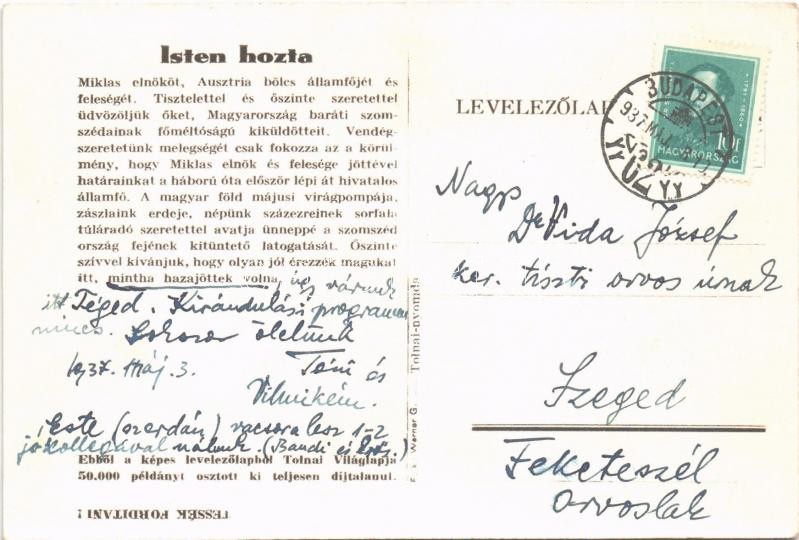 Isten hozta
Miklas elnököt, Ausztria bölcs államfőjét és
feleségét. Tisztelettel és őszinte szeretettel
üdvözöljük őket, Magyarország baráti szom-
szédainak főméltóságú kiküldötteit. Vendég-
szeretetünk melegségét csak fokozza az a körül-
mény, hogy Miklas elnök és felesége jöttével
határainkat a háború óta először lépi át hivatalos
államfő. A magyar föld májusi virágpompája,
zászlaink erdeje, népünk százezreinek sorfala
túláradó szeretettel avatja ünneppé a szomszéd
ország fejének kitüntető látogatását. Őszinte
szívvel kívánjuk, hogy olyan jól érezzék magukat
itt, mintha hazajöttek volna, úgy várunk
itt Téged. Kirándulási program
nincs. Sokszor ölelünk
1937. Máj. 3. Téni és
Vilmikém.
Este (szerdán) vacsora lesz 1-2
jó kollegával nálunk. (Bandi és
Ebből a képes levelezőlapból Tolnai Világlapja
50.000 példányt osztott ki teljesen díjtalanul.
TESSÉK FORDITANI !
Werner G. — Tolnai-nyomda
LEVELEZŐLAP
BUDAPEST
937 MÁJ
10 f
MAGYARORSZÁG
Nags
Dr Vida József
ker. tiszti orvos úrnak
Szeged
Feketeszél
orvoslak